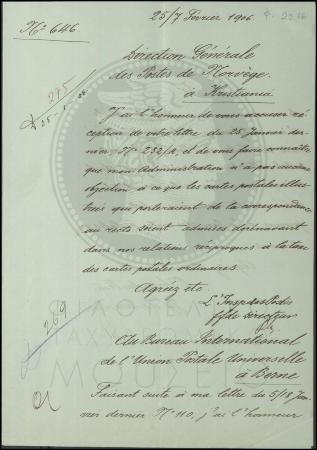 25/7 Février 1906
Nº 646
Direction Générale
des Postes de Norvège
à Kristiania
J'ai l'honneur de vous accuser ré-
ception de votre lettre du 25 janvier der-
nier Nº 232/A, et de vous faire connaître
que mon Administration n'a pas aucune
objection à ce que les cartes postales illus-
trées qui porteraient de la correspondance
au recto soient admises dorénavant
dans nos relations réciproques à la taxe
des cartes postales ordinaires.
Agréez etc.
269
L'Insp des Postes
Directeur
Au Bureau International
de l'Union Postale Universelle
à Berne
Faisant suite à ma lettre du 5/18 Jan-
vier dernier Nº 110, j'ai l'honneur